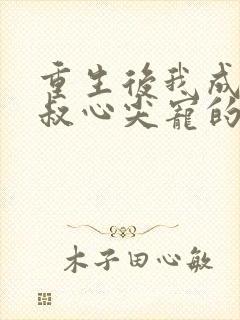 重生後我成
叔心尖寵的
木子田心敏